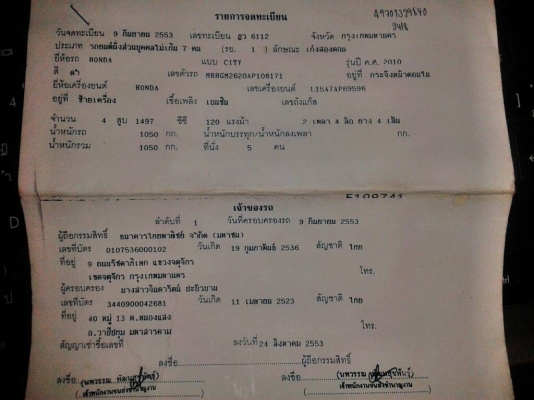 รายการจดทะเบียน
วันจดทะเบียน 9 กันยายน 2553 เลขทะเบียน ฎว 6112 จังหวัด กรุงเทพมหานคร
ประเภท รถยนต์นั่งส่วนบุคคลไม่เกิน 7 คน (รย. 1 ) ลักษณะ เก๋งสองตอน
ยี่ห้อรถ HONDA แบบ CITY รุ่นปี ค.ศ. 2010
สี ดำ เลขตัวรถ MRHGM2620AP108171 อยู่ที่ กระจังหน้าตอนใน
ยี่ห้อเครื่องยนต์ HONDA เลขเครื่องยนต์ L15A7AP69596
อยู่ที่ ซ้ายเครื่อง เชื้อเพลิง เบนซิน เลขถังแก๊ส
จำนวน 4 สูบ 1497 ซีซี 120 แรงม้า 2 เพลา 4 ล้อ ยาง 4 เส้น
น้ำหนักรถ 1050 กก. น้ำหนักบรรทุก/น้ำหนักลงเพลา กก.
น้ำหนักรวม 1050 กก. ที่นั่ง 5 คน
เจ้าของรถ
ลำดับที่ 1 วันที่ครอบครองรถ 9 กันยายน 2553
ผู้ถือกรรมสิทธิ์ ธนาคารไทยพาณิชย์ จำกัด (มหาชน)
เลขที่บัตร 0107536000102 วันเกิด 19 กุมภาพันธ์ 2536 สัญชาติ ไทย
ที่อยู่ 9 ถนนรัชดาภิเษก แขวงจตุจักร
เขตจตุจักร กรุงเทพมหานคร โทร.
ผู้ครอบครอง นางสาวจินดารัตน์
เลขที่บัตร 3440900042681 วันเกิด 11 เมษายน 2523 สัญชาติ ไทย
ที่อยู่ 40 หมู่ 13 ต.หนองแสง
อ.วาปีปทุม มหาสารคาม โทร.
สัญญาเช่าซื้อเลขที่ ลงวันที่ 24 สิงหาคม 2553
ลงชื่อ ผู้ถือกรรมสิทธิ์
ลงชื่อ ลงชื่อ
เจ้าพนักงานขนส่งชำนาญงาน เจ้าพนักงานขนส่งชำนาญงาน